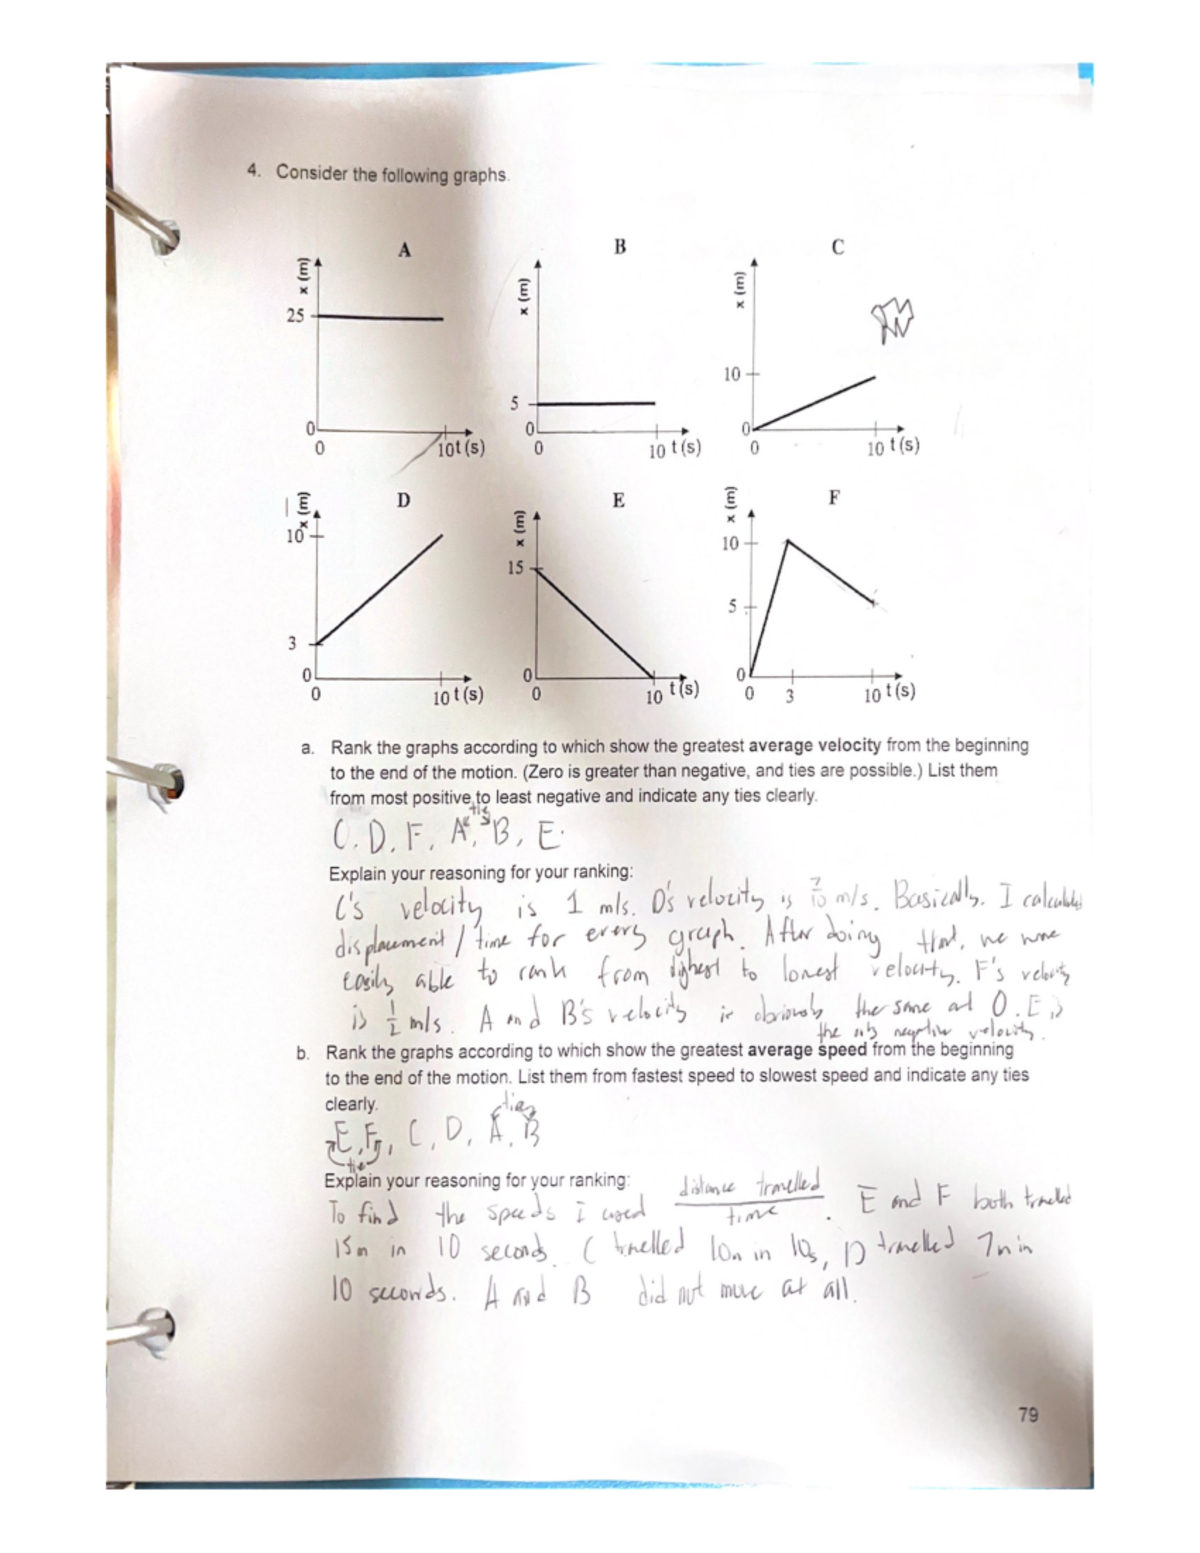 4. Consider the following graphs.
A
B
C
x (m)
25
0
0
10t (s)
x (m)
5
0
0
10 t (s)
x (m)
10
0
0
10 t (s)
D
E
F
x (m)
10
3
0
0
10 t (s)
x (m)
15
0
0
10 t (s)
x (m)
10
5
0
0
3
10 t (s)
a. Rank the graphs according to which show the greatest average velocity from the beginning
to the end of the motion. (Zero is greater than negative, and ties are possible.) List them
from most positive to least negative and indicate any ties clearly.
ties
C, D, F, A, B, E.
Explain your reasoning for your ranking:
C's velocity is 1 m/s. D's velocity is 7/10 m/s. Basically, I calculated
displacement / time for every graph. After doing that, we were
easily able to rank from highest to lowest velocity. F's velocity
is 1/2 m/s. A and B's velocity is obviously the same at 0. E is
the only negative velocity.
b. Rank the graphs according to which show the greatest average speed from the beginning
to the end of the motion. List them from fastest speed to slowest speed and indicate any ties
clearly.
ties
E, F, C, D, A, B
tie
Explain your reasoning for your ranking:
To find the speeds I used distance travelled / time. E and F both travelled
15m in 10 seconds. C travelled 10m in 10s, D travelled 7m in
10 seconds. A and B did not move at all.
79